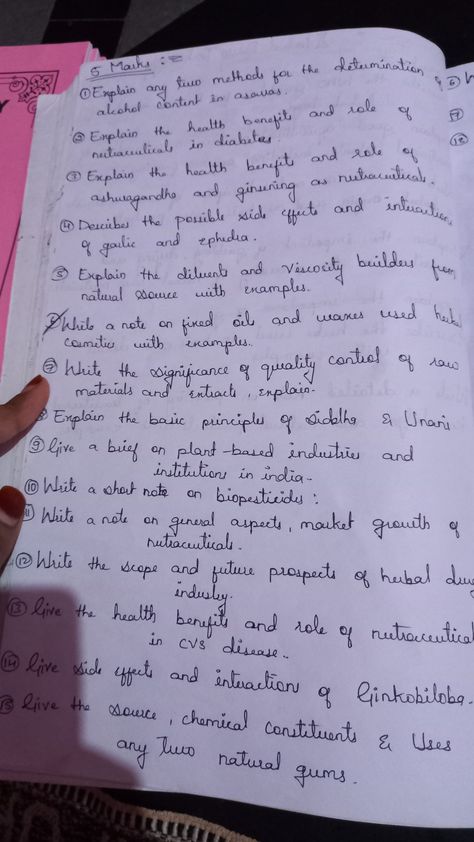 5 Marks :-
① Explain any two methods for the determination of
alcohol content in asavas.
② Explain the health benefit and role of
nutraceuticals in diabetes.
③ Explain the health benefit and role of
ashwagandha and ginseng as nutraceuticals.
④ Describe the possible side effects and interaction
of garlic and ephedra.
⑤ Explain the diluents and viscosity builders from
natural source with examples.
Write a note on fixed oils and waxes used herbal
cosmetic with examples.
⑦ Write the significance of quality control of raw
materials and extracts, explain.
8 Explain the basic principles of Siddha & Unani
⑨ Give a brief on plant-based industries and
institution in india.
⑩ Write a short note on biopesticides :
11 Write a note on general aspects, market growth of
nutraceuticals.
⑫ Write the scope and future prospects of herbal drug
industry.
⑬ Give the health benefits and role of nutraceutical
in CVS disease..
⑭ Give side effects and interaction of Ginkobiloba.
15 Give the source, chemical constituents & Uses
any two natural gums.
6
17
18